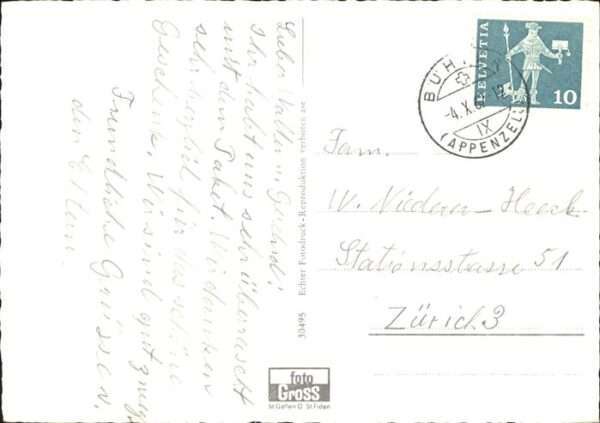 Lieber Walter u. Gertrud!
Ihr habt uns sehr überascht
mit dem Paket. Wir danken
sehr herzlich für das schöne
Geschenk. Wir sind gut zweg.
Freundliche Grüssen,
den Eltern.
30495 Echter Fotodruck-Reproduktion verboten
foto
Gross
St. Gallen O St. Fiden
HELVETIA
10
BÜH
-4.X.6
IX
(APPENZELL)
Fam.
W. Niederer-Heeck
Stationsstrasse 51
Zürich 3